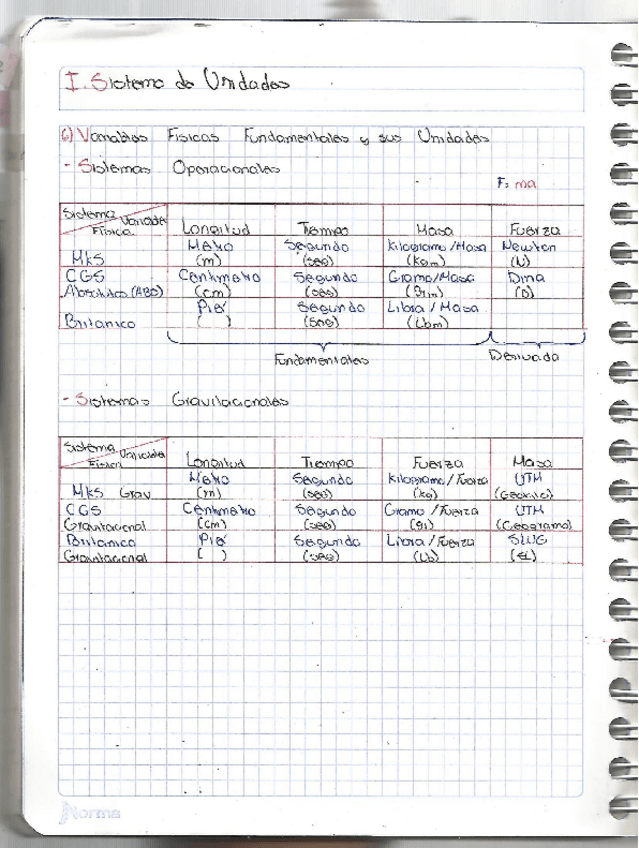 I. Sistema de Unidades
6) Variables Fisicas Fundamentales y sus Unidades
- Sistemas Operacionales
F= ma
Sistema Variable
Fisica Longitud Tiempo Masa Fuerza
Metro Segundo Kilogramo/Masa Newton
MKS (m) (seg) (Kgm) (N)
CGS Centimetro Segundo Gramo/Masa Dina
Absolutos (ABS) (cm) (seg) (grm) (D)
Pie Segundo Libra/Masa
Britanico ( ) (seg) (Lbm)
Fundamentales Derivada
- Sistemas Gravitacionales
Sistema Variable
Fisica Longitud Tiempo Fuerza Masa
Metro Segundo Kilogramo/Fuerza UTM
MKS Grav. (m) (seg) (kg)
CGS Centimetro Segundo Gramo/Fuerza UTM
Gravitacional (cm) (seg) (gr) (Geogramo)
Britanico Pie Segundo Libra/Fuerza SLUG
Gravitacional ( ) (seg) (Lb) (SL)
Norma